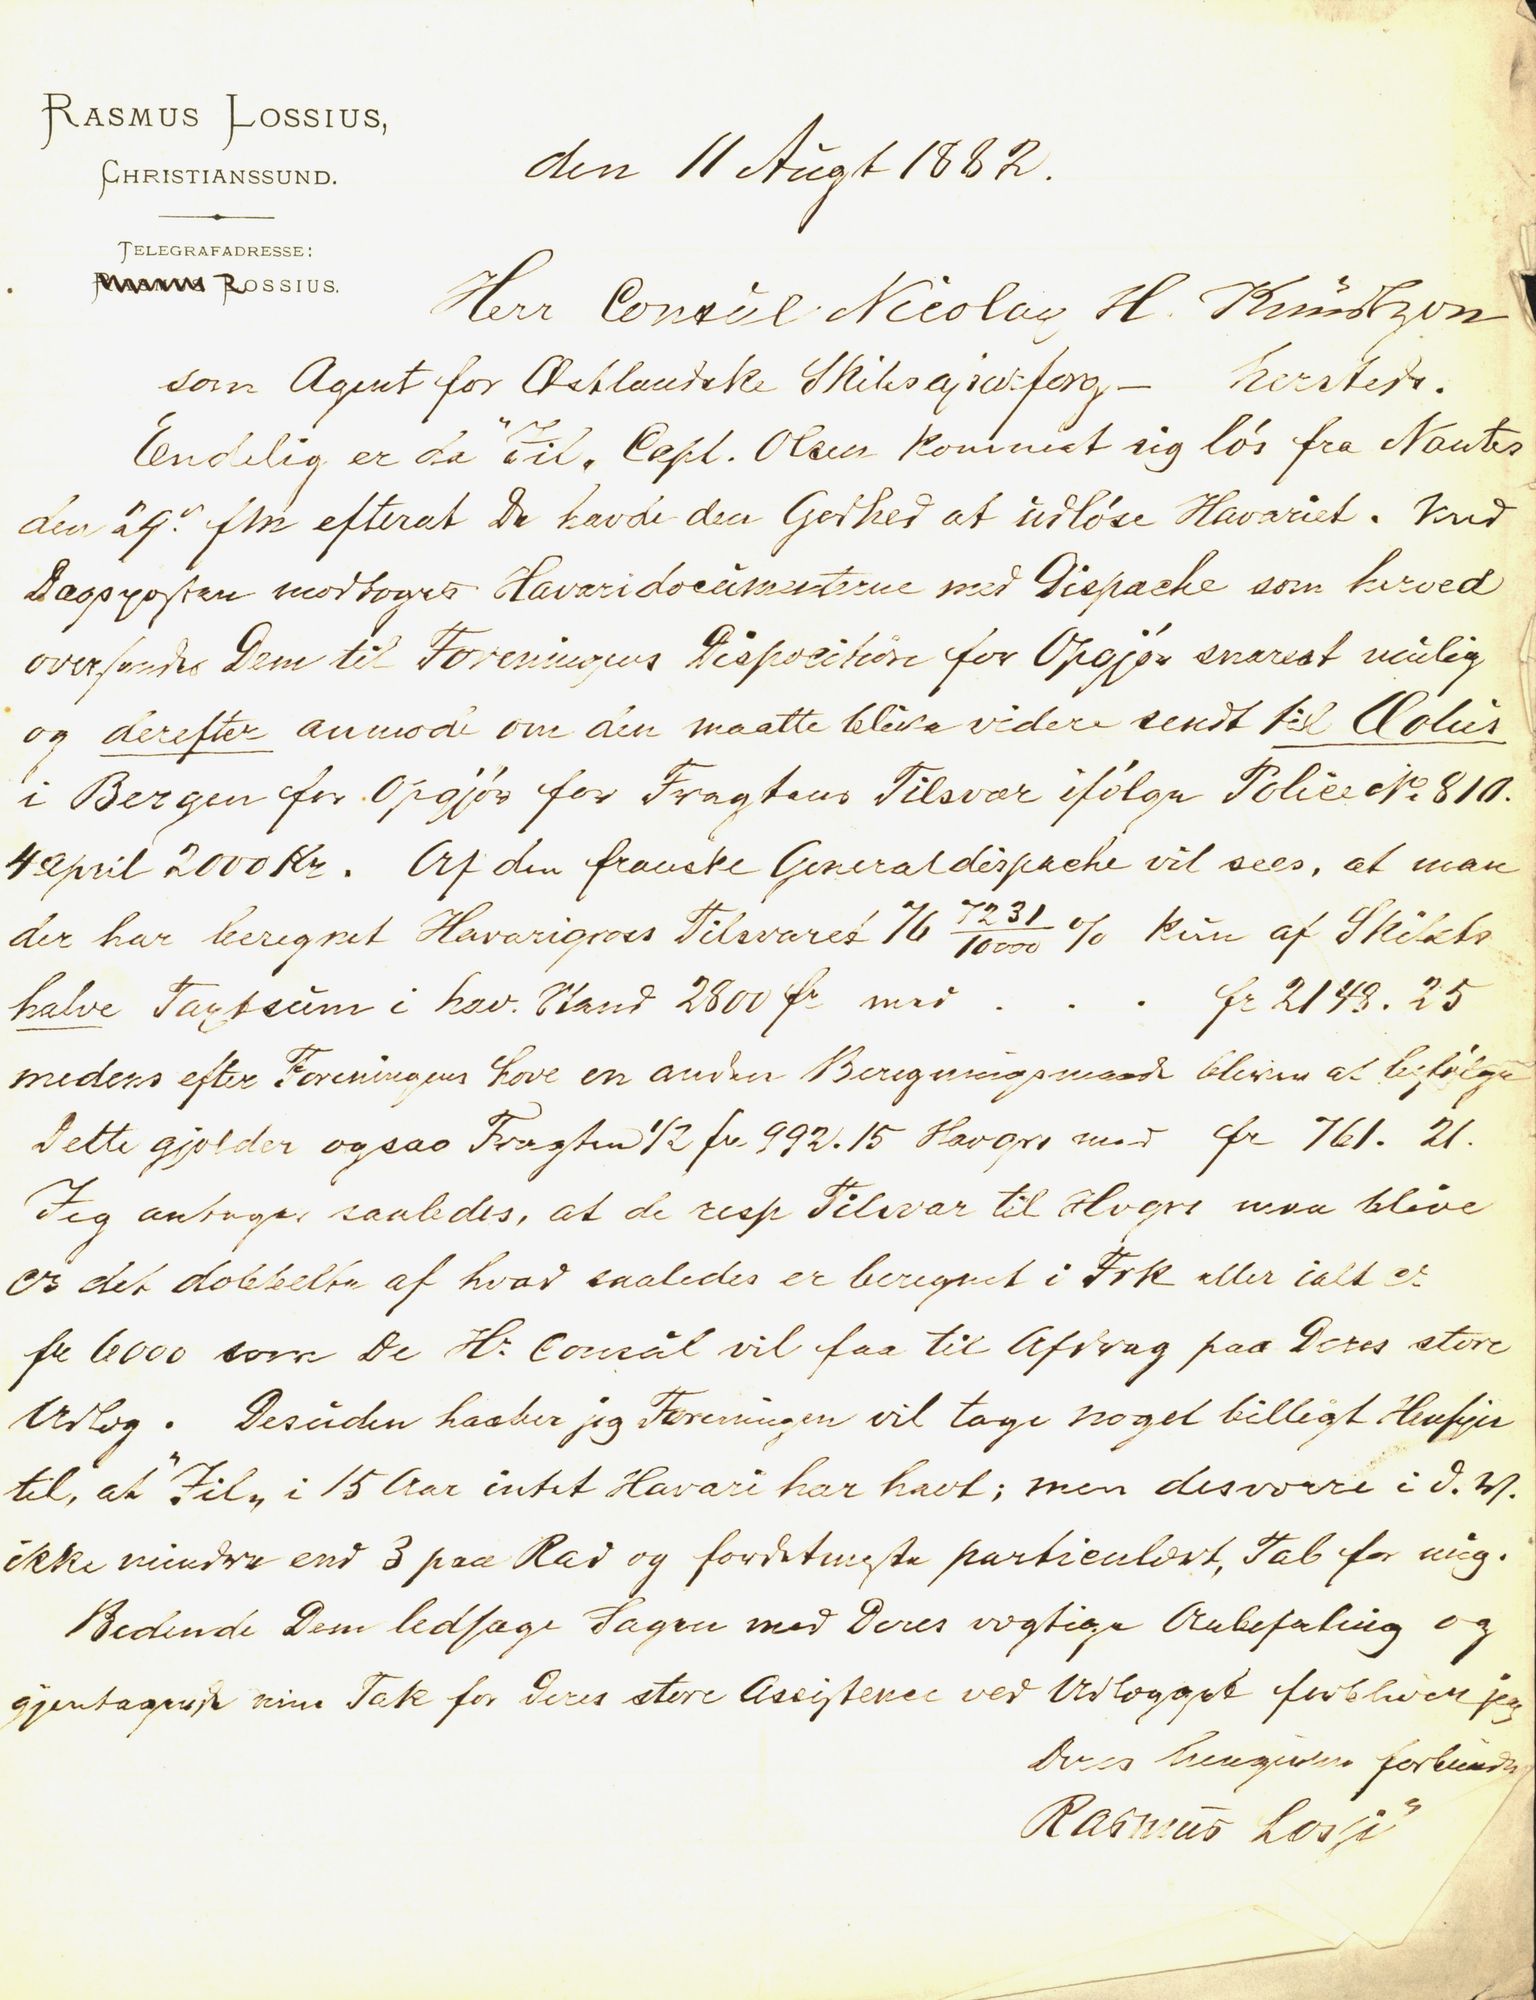 RASMUS LOSSIUS,
CHRISTIANSSUND.
TELEGRAFADRESSE:
ROSSIUS.
den 11 Augt 1882.
Herr Consul Nicolay H. Knudtzon
som Agent for Østlandske Skibsassurforg — hersteds.
Endelig er da "Zil" Capt. Olsen kommet sig løs fra Nantes
den 29' f/m efterat De havde den Godhed at udløse Havariet. Med
Dagsposten modtoges Havaridocumenterne med Dispache som herved
oversendes Dem til Foreningens Disposition for Opgjør snarest mulig
og derefter anmode om den maatte blive videre sendt til Æolus
i Bergen for Opgjør for Fragtens Tilsvar ifølge Police No 810.
4 april 2000 Kr. Af den franske Generaldispache vil sees, at man
der har beregnet Havarigross Tilsvaret 76 7231/10000 % kun af Skibets
halve Taxtsum i hav. Stand 2800 fr med . . . fr 2148.25
medens efter Foreningens Love en anden Beregningsmaade bliver at befølge
Dette gjælder ogsaa Fragten 1/2 fr 992.15 Havgrs med fr 761.21.
Jeg antager saaledes, at de resp Tilsvar til Hvgrs maa blive
det dobbelte af hvad saaledes er beregnet i Frk eller ialt ca
fr 6000 som De Hr. Consul vil faa til Afdrag paa Deres store
Udlæg. Desuden haaber jeg Foreningen vil tage noget billigt Hensyn
til, at "Zil" i 15 Aar intet Havari har havt; men desværre i d. A.
ikke mindre end 3 paa Rad og fordetmeste particulært, Tab for mig.
Bedende Dem ledsage Sagen med Deres vægtige Anbefaling og
gjentagende min Tak for Deres store Assistence ved Udlægget forbliver jeg
Deres hengivne forbundne
Rasmus Lossius